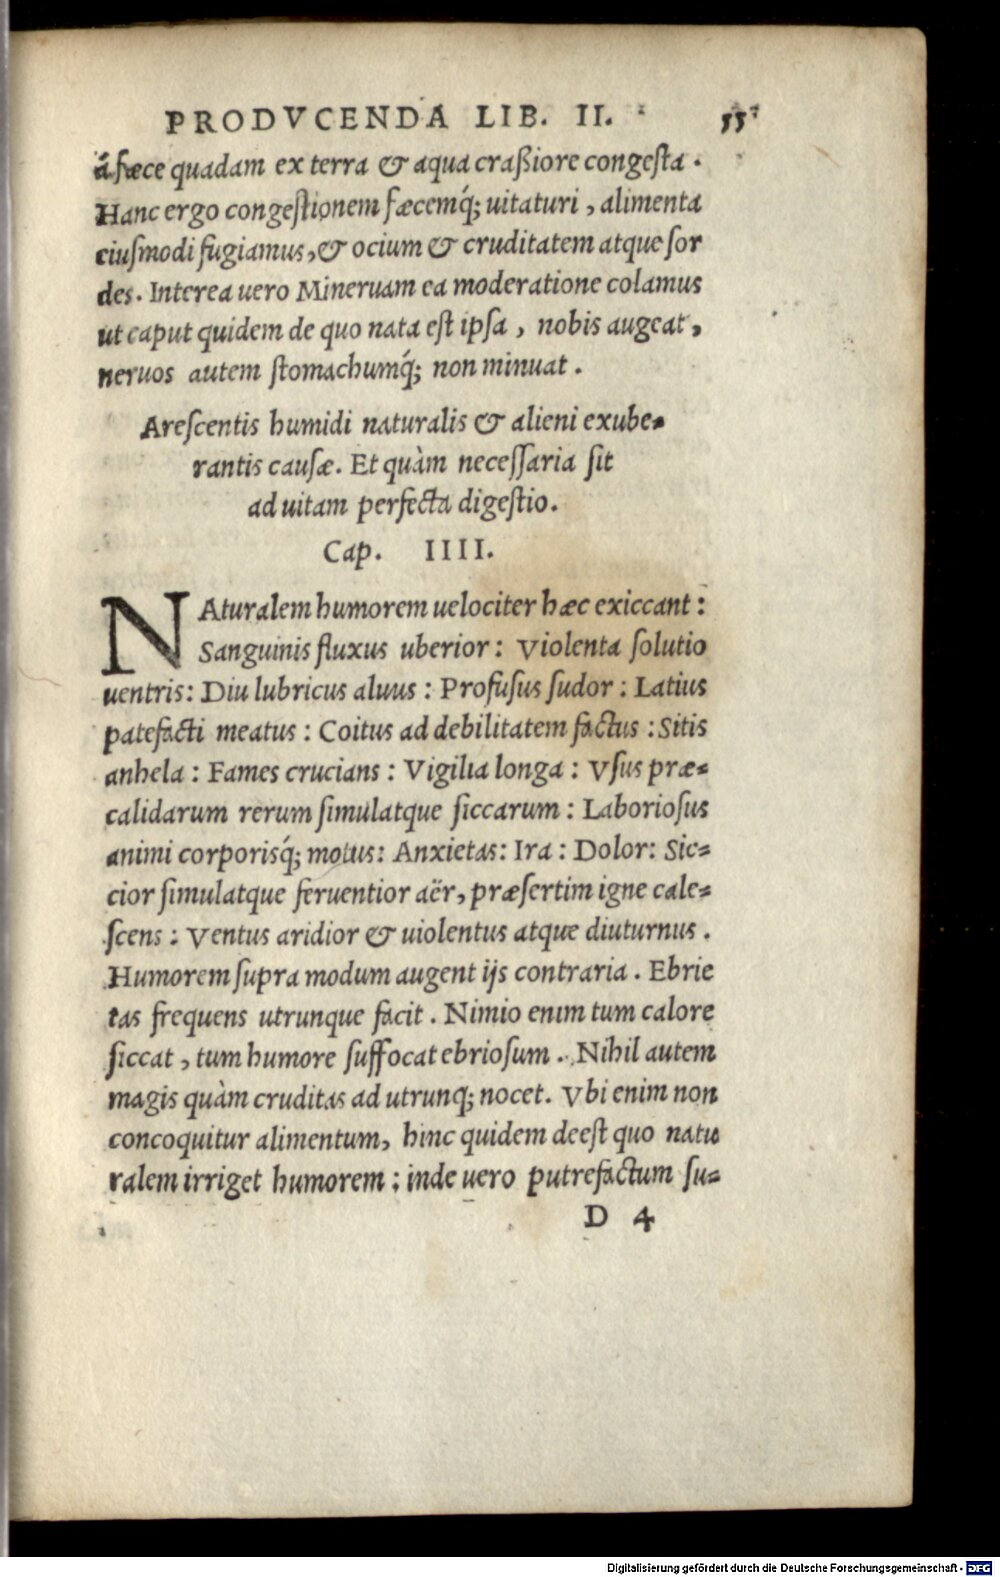 PRODVCENDA LIB. II. 55
á fæce quadam ex terra & aqua craßiore congesta.
Hanc ergo congestionem fæcemq́; uitaturi, alimenta
eiusmodi fugiamus, & ocium & cruditatem atque sor
des. Interea uero Mineruam ea moderatione colamus
ut caput quidem de quo nata est ipsa, nobis augeat,
neruos autem stomachumq́; non minuat.
Arescentis humidi naturalis & alieni exube=
rantis causæ. Et quàm necessaria sit
ad uitam perfecta digestio.
Cap. IIII.
NAturalem humorem uelociter hæc exiccant:
Sanguinis fluxus uberior: Violenta solutio
uentris: Diu lubricus aluus: Profusus sudor: Latius
patefacti meatus: Coitus ad debilitatem factus: Sitis
anhela: Fames crucians: Vigilia longa: Vsus præ=
calidarum rerum simulatque siccarum: Laboriosus
animi corporisq́; motus: Anxietas: Ira: Dolor: Sic=
cior simulatque feruentior aër, præsertim igne cale=
scens: Ventus aridior & uiolentus atque diuturnus.
Humorem supra modum augent ijs contraria. Ebrie
tas frequens utrunque facit. Nimio enim tum calore
siccat, tum humore suffocat ebriosum. Nihil autem
magis quàm cruditas ad utrunq; nocet. Vbi enim non
concoquitur alimentum, hinc quidem deest quo natu
ralem irriget humorem: inde uero putrefactum su=
D 4
Digitalisierung gefördert durch die Deutsche Forschungsgemeinschaft - DFG